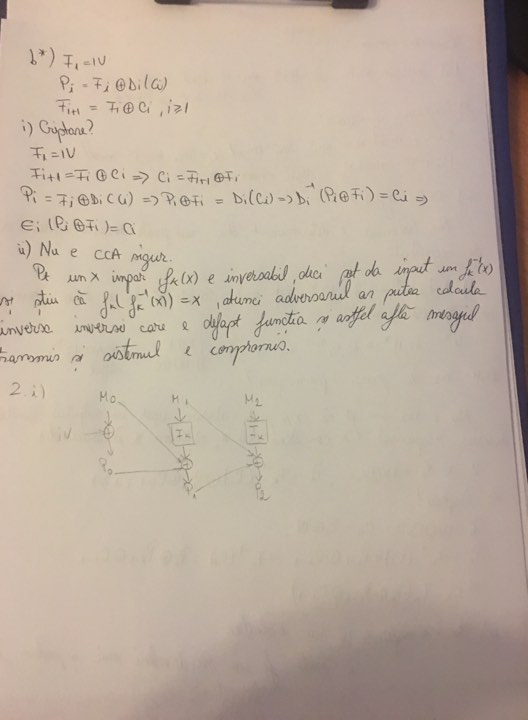 b*) F₁ = IV
Pi = Fi ⊕ Di(Ci)
Fi+1 = Fi ⊕ Ci , i≥1
i) Criptare?
F₁ = IV
Fi+1 = Fi ⊕ Ci => Ci = Fi+1 ⊕ Fi
Pi = Fi ⊕ Di(Ci) => Pi ⊕ Fi = Di(Ci) => Di⁻¹(Pi ⊕ Fi) = Ci =>
Ei(Pi ⊕ Fi) = Ci
ii) Nu e CCA sigur.
Pt un x impar fk(x) e inversabil, deci pot da input un fk⁻¹(x)
și știu că fk(fk⁻¹(x)) = x , atunci adversarul ar putea calcula
inversa inversei care e defapt funcția și astfel află mesajul
transmis și sistemul e compromis.
2. i)
M0 M1 M2
IV Fk Fk